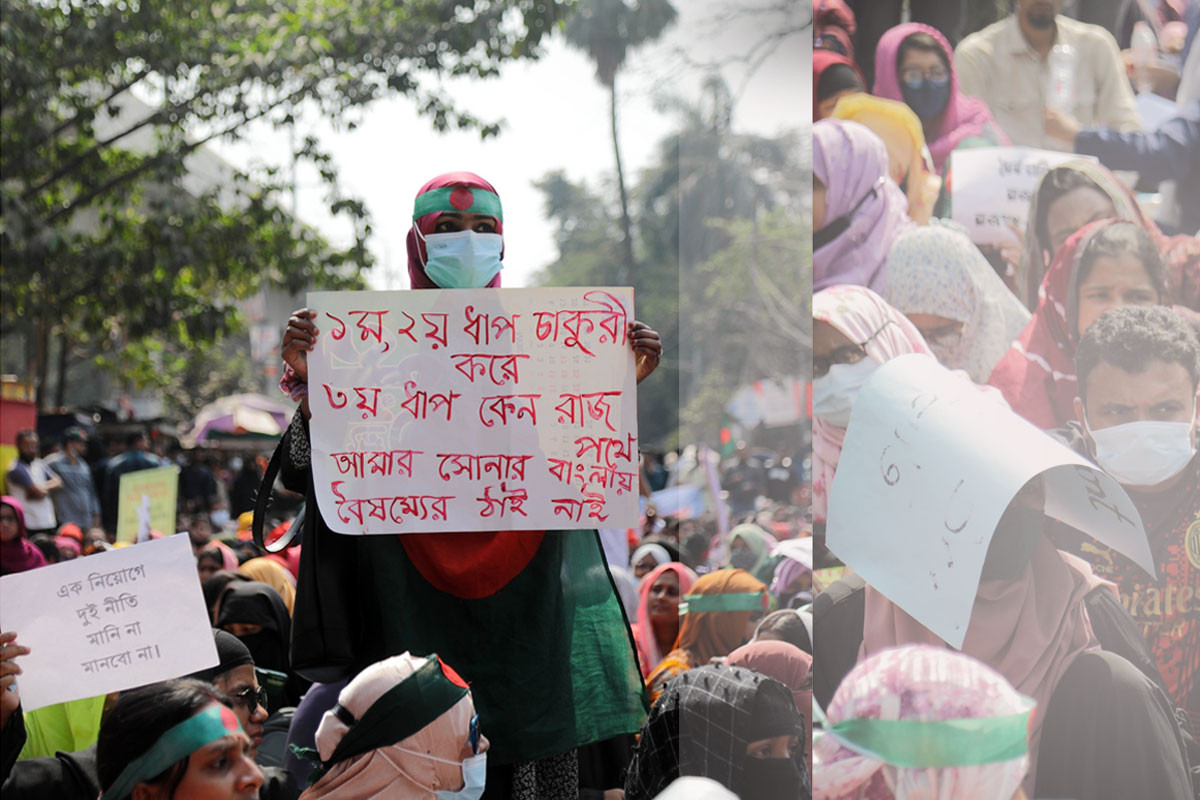 ১ম, ২য় ধাপ চাকুরী
করে
৩য় ধাপ কেন রাজ
পথে
আমার সোনার বাংলায়
বৈষম্যের ঠাই নাই
এক নিয়োগে
দুই নীতি
মানি না
মানবো না।